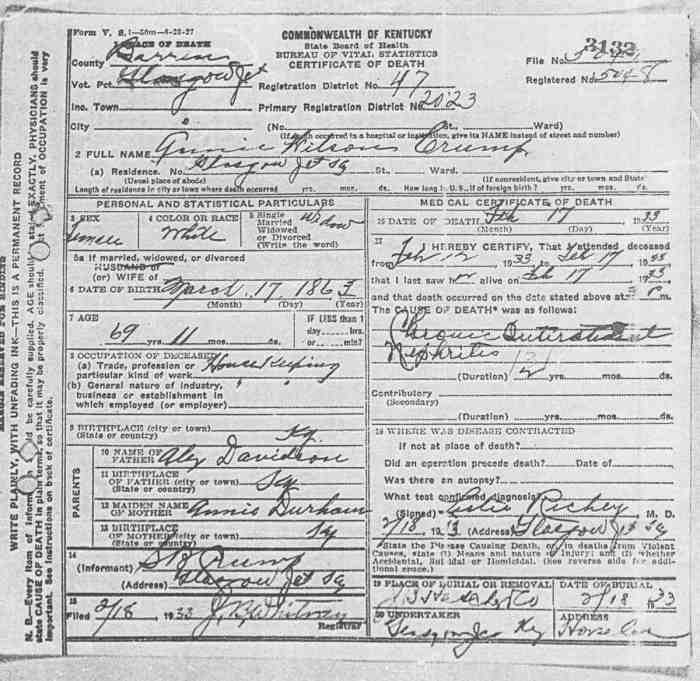 Form V. S. 1-50m-4-28-27
COMMONWEALTH OF KENTUCKY
State Board of Health
BUREAU OF VITAL STATISTICS
CERTIFICATE OF DEATH
3132
PLACE OF DEATH
County Barren
File No.
Vot. Pct. Glasgow Jct
Registration District No. 47
Registered No. 5048
Inc. Town
Primary Registration District No. 2023
City
(No. St., Ward)
(If death occurred in a hospital or institution, give its NAME instead of street and number)
2 FULL NAME Annie Wilson Crump
(a) Residence. No. Glasgow Jct Ky St., Ward.
(Usual place of abode) (If nonresident, give city or town and State)
Length of residence in city or town where death occurred yrs. mos. ds. How long in U.S., if of foreign birth? yrs. mos. ds.
PERSONAL AND STATISTICAL PARTICULARS
3 SEX
Female
4 COLOR OR RACE
White
5 Single
Married
Widowed
or Divorced
(Write the word)
Widow
5a If married, widowed, or divorced
HUSBAND of
(or) WIFE of
6 DATE OF BIRTH March 17 1863
(Month) (Day) (Year)
7 AGE
69 yrs. 11 mos. ds.
IF LESS than 1
day hrs.
or min.?
8 OCCUPATION OF DECEASED
(a) Trade, profession or
particular kind of work House Keeping
(b) General nature of industry,
business or establishment in
which employed (or employer)
9 BIRTHPLACE (city or town)
(State or country) Ky
PARENTS
10 NAME OF
FATHER Alex Davidson
11 BIRTHPLACE
OF FATHER (city or town)
(State or country) Ky
12 MAIDEN NAME
OF MOTHER Annie Durham
13 BIRTHPLACE
OF MOTHER (city or town)
(State or country) Ky
14
(Informant) S B Crump
(Address) Glasgow Jct Ky
15
Filed 2/18 1933 J. B. Whitney
Registrar
MEDICAL CERTIFICATE OF DEATH
16 DATE OF DEATH Feb 17 1933
(Month) (Day) (Year)
17
I HEREBY CERTIFY, That I attended deceased
from Feb 12 1933 to Feb 17 1933
that I last saw alive on Feb 17 1933
and that death occurred on the date stated above at m.
The CAUSE OF DEATH* was as follows:
Chronic Interstitial
Nephritis
(Duration) yrs. mos. ds.
Contributory
(Secondary)
(Duration) yrs. mos. ds.
18 WHERE WAS DISEASE CONTRACTED
If not at place of death?
Did an operation precede death? Date of
Was there an autopsy?
What test confirmed diagnosis?
(Signed) Leslie Richey M. D.
2/18 193 (Address) Glasgow Jct Ky
*State the Disease Causing Death, or, in deaths from Violent
Causes, state (1) Means and nature of Injury; and (2) Whether
Accidental, Suicidal or Homicidal. (See reverse side for addi-
tional space.)
19 PLACE OF BURIAL OR REMOVAL
DATE OF BURIAL
2/18 1933
20 UNDERTAKER
ADDRESS
Horse Cave
N. B.—Every item of information should be carefully supplied. AGE should be stated EXACTLY. PHYSICIANS should
state CAUSE OF DEATH in plain terms, so that it may be properly classified. Exact statement of OCCUPATION is very
important. See instructions on back of certificate.
WRITE PLAINLY, WITH UNFADING INK—THIS IS A PERMANENT RECORD
MARGIN RESERVED FOR BINDING